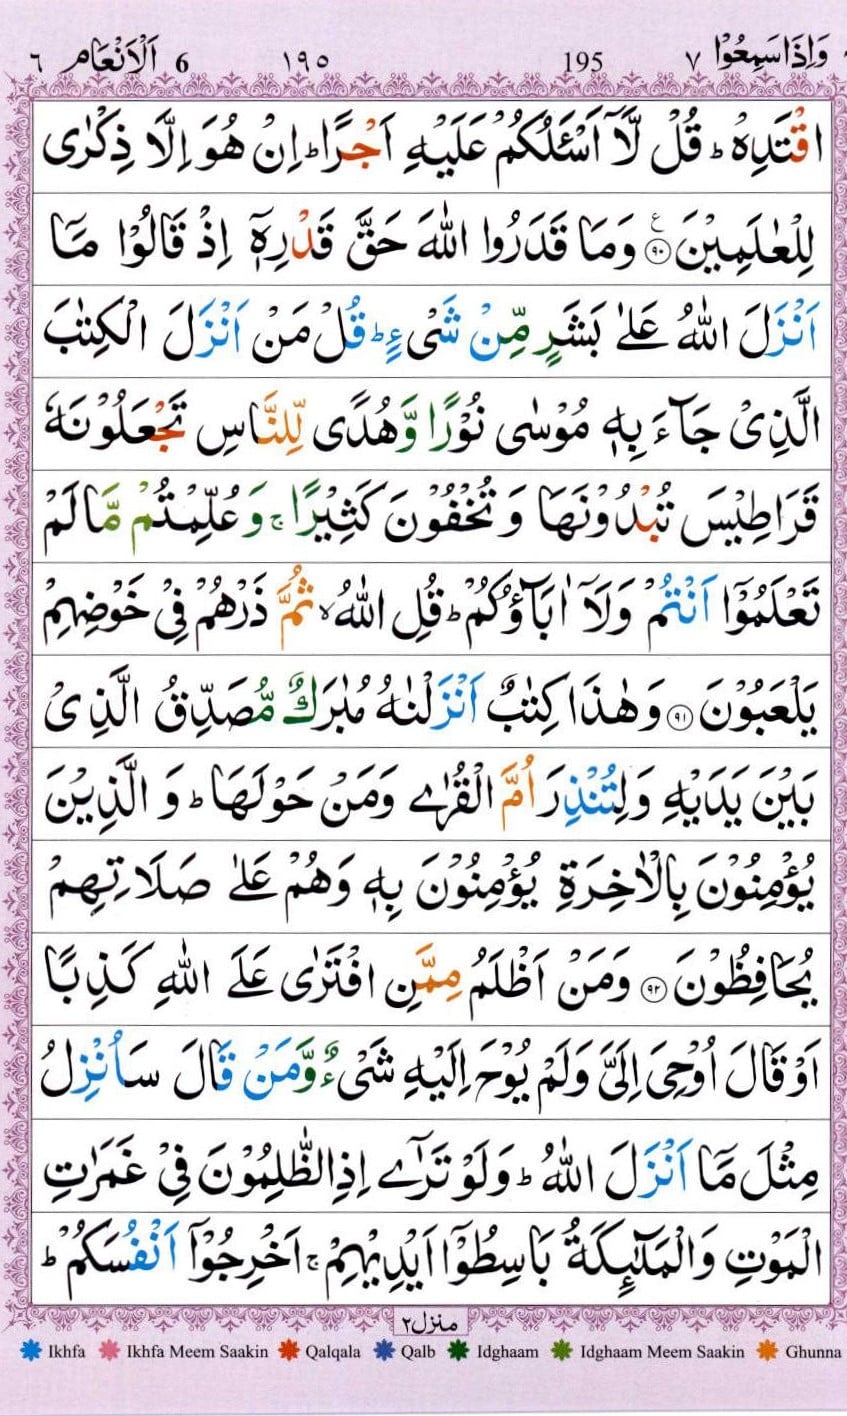 وَاِذَاسَمِعُوْا ٧ 195 ١٩٥ 6 اَلْاَنْعَام ٦
اقْتَدِهْ ؕ قُلْ لَّاۤ اَسْـَٔلُكُمْ عَلَيْهِ اَجْرًا ؕ اِنْ هُوَ اِلَّا ذِكْرٰى
لِلْعٰلَمِيْنَ ﴿٩٠﴾ ع وَمَا قَدَرُوا اللّٰهَ حَقَّ قَدْرِهٖۤ اِذْ قَالُوْا مَاۤ
اَنْزَلَ اللّٰهُ عَلٰى بَشَرٍ مِّنْ شَیْءٍ ؕ قُلْ مَنْ اَنْزَلَ الْكِتٰبَ
الَّذِیْ جَآءَ بِهٖ مُوْسٰى نُوْرًا وَّهُدًى لِّلنَّاسِ تَجْعَلُوْنَهٗ
قَرَاطِيْسَ تُبْدُوْنَهَا وَتُخْفُوْنَ كَثِيْرًا ۚ وَعُلِّمْتُمْ مَّا لَمْ
تَعْلَمُوْۤا اَنْتُمْ وَلَاۤ اٰبَآؤُكُمْ ؕ قُلِ اللّٰهُ ۙ ثُمَّ ذَرْهُمْ فِیْ خَوْضِهِمْ
يَلْعَبُوْنَ ﴿٩١﴾ وَهٰذَا كِتٰبٌ اَنْزَلْنٰهُ مُبٰرَكٌ مُّصَدِّقُ الَّذِیْ
بَيْنَ يَدَيْهِ وَلِتُنْذِرَ اُمَّ الْقُرٰى وَمَنْ حَوْلَهَا ؕ وَالَّذِيْنَ
يُؤْمِنُوْنَ بِالْاٰخِرَةِ يُؤْمِنُوْنَ بِهٖ وَهُمْ عَلٰى صَلَاتِهِمْ
يُحَافِظُوْنَ ﴿٩٢﴾ وَمَنْ اَظْلَمُ مِمَّنِ افْتَرٰى عَلَى اللّٰهِ كَذِبًا
اَوْ قَالَ اُوْحِیَ اِلَیَّ وَلَمْ يُوْحَ اِلَيْهِ شَیْءٌ وَّمَنْ قَالَ سَاُنْزِلُ
مِثْلَ مَاۤ اَنْزَلَ اللّٰهُ ؕ وَلَوْ تَرٰۤى اِذِ الظّٰلِمُوْنَ فِیْ غَمَرٰتِ
الْمَوْتِ وَالْمَلٰٓئِكَةُ بَاسِطُوْۤا اَيْدِيْهِمْ ۚ اَخْرِجُوْۤا اَنْفُسَكُمْ ؕ
منزل٢
Ikhfa Ikhfa Meem Saakin Qalqala Qalb Idghaam Idghaam Meem Saakin Ghunna